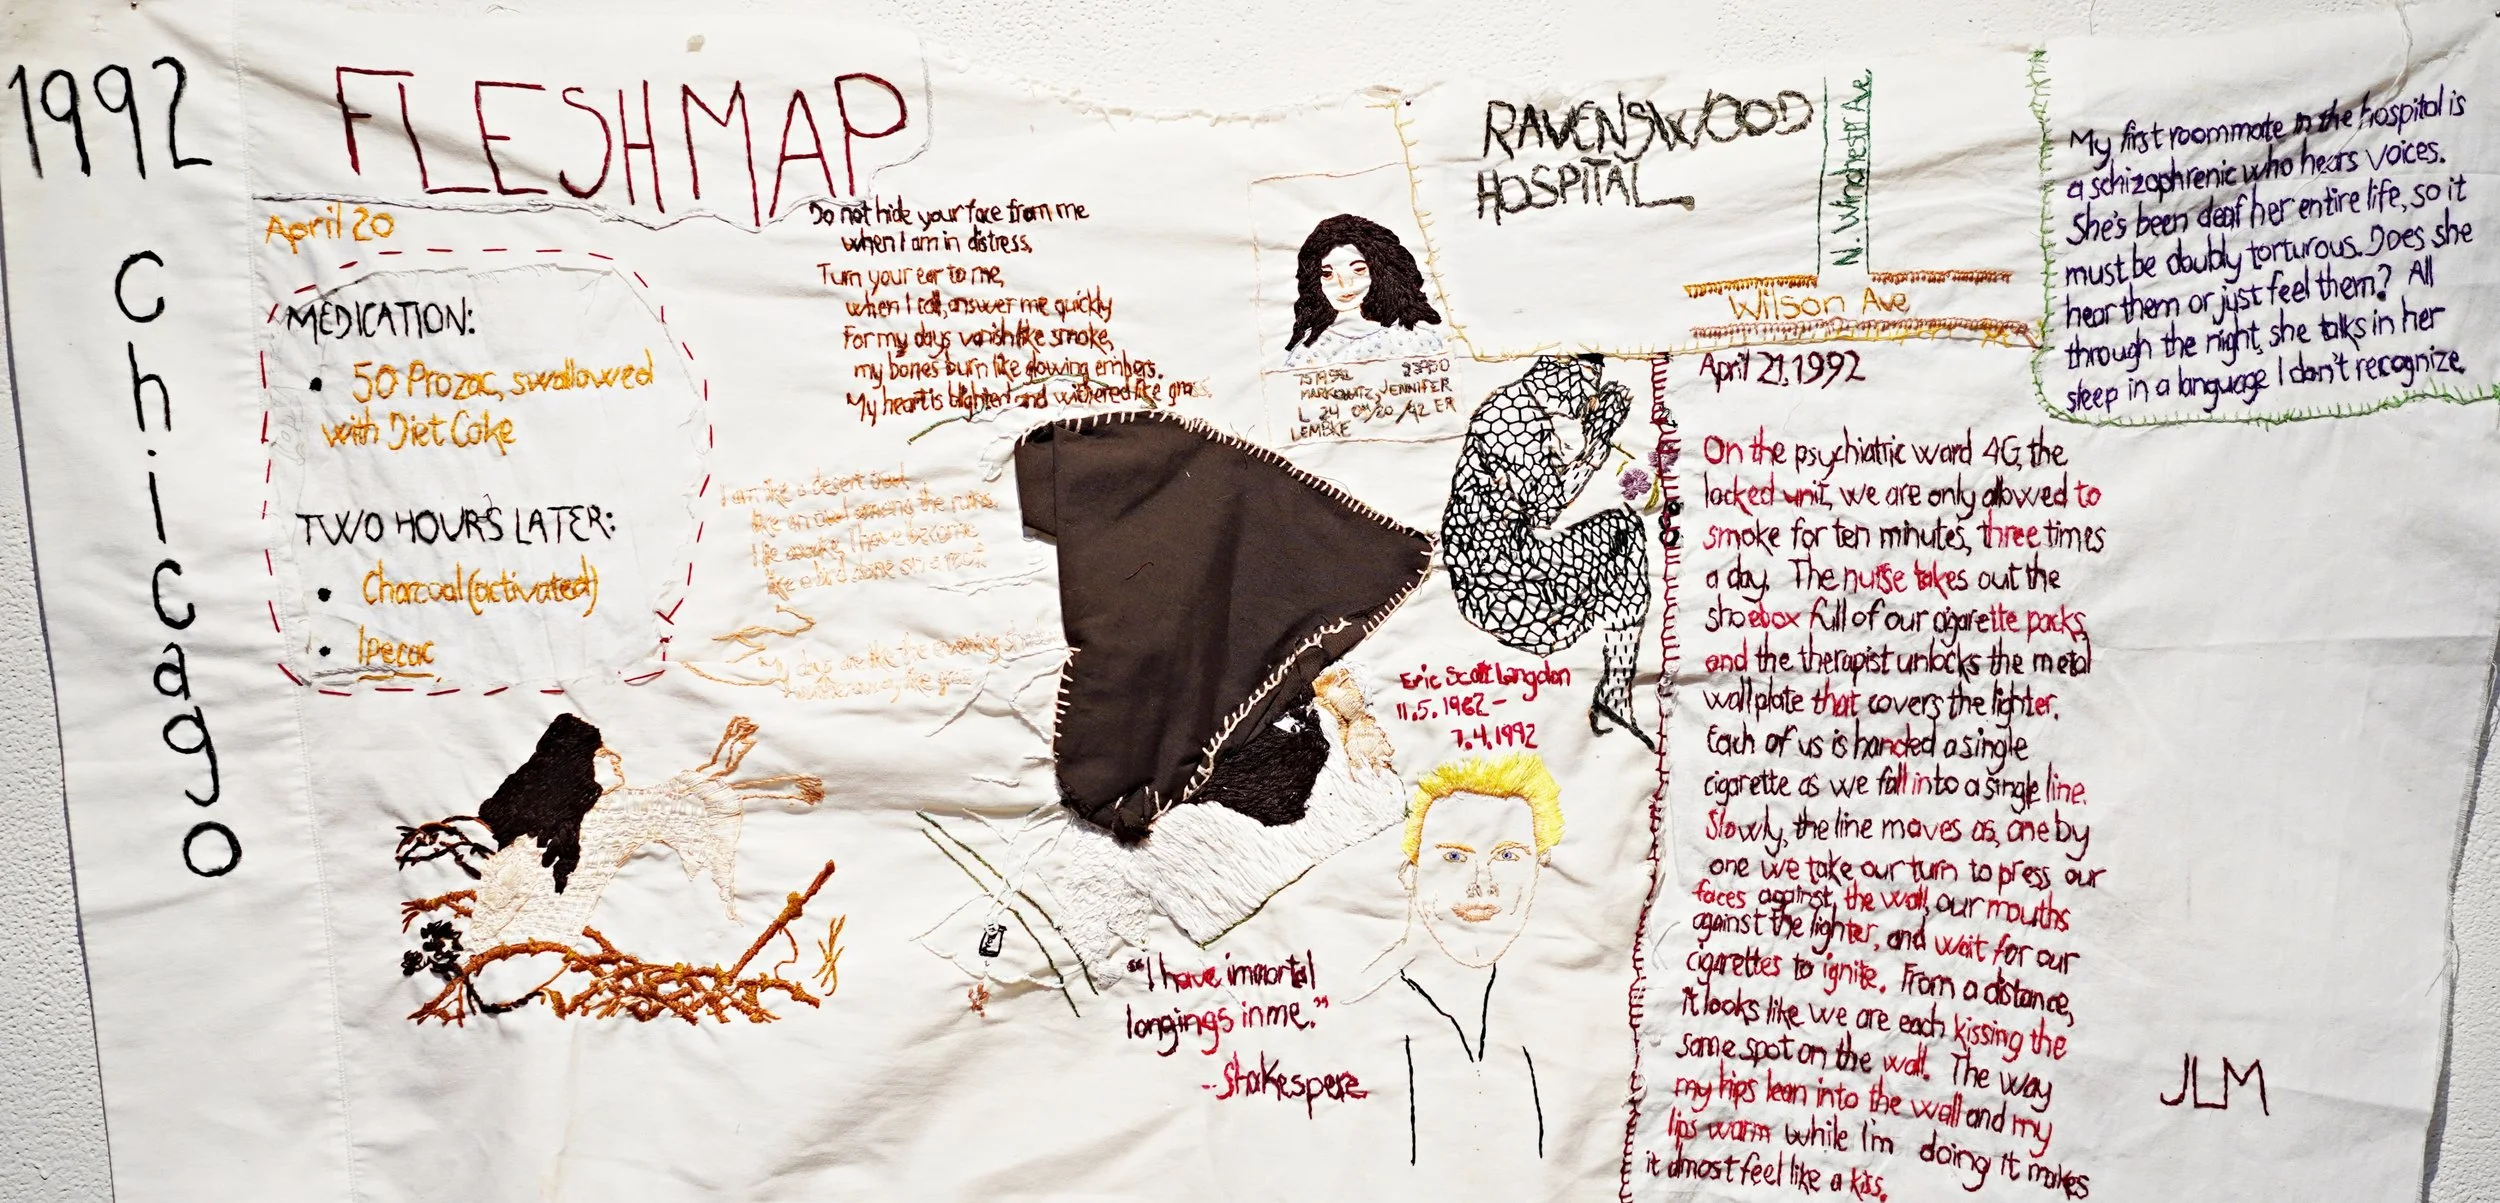 1992
Chicago
FLESHMAP
April 20
MEDICATION:
• 50 Prozac, swallowed
with Diet Coke
TWO HOURS LATER:
• Charcoal (activated)
• Ipecac
Do not hide your face from me
when I am in distress,
Turn your ear to me,
when I call, answer me quickly
For my days vanish like smoke,
my bones burn like glowing embers.
My heart is blighted and withered like grass.
I am like a desert owl
like an owl among the ruins.
I lie awake, I have become
like a bird alone on a roof.
My days are like the evening
away like grass
MARKOWITZ, JENNIFER
L 24 04/20/92 ER
LEMBKE
Eric Scott Langdon
11.5.1962 –
7.4.1992
"I have immortal
longings in me."
-- Shakespere
RAVENSWOOD
HOSPITAL
N. Winchester Ave
Wilson Ave
April 21, 1992
On the psychiatric ward 4G, the
locked unit, we are only allowed to
smoke for ten minutes, three times
a day. The nurse takes out the
shoebox full of our cigarette packs,
and the therapist unlocks the metal
wall plate that covers the lighter.
Each of us is handed a single
cigarette as we fall into a single line.
Slowly, the line moves as, one by
one we take our turn to press our
faces against the wall, our mouths
against the lighter, and wait for our
cigarettes to ignite. From a distance,
it looks like we are each kissing the
same spot on the wall. The way
my hips lean into the wall and my
lips warm while I'm doing it makes
it almost feel like a kiss.
My first roommate in the hospital is
a schizophrenic who hears voices.
She's been deaf her entire life, so it
must be doubly torturous. Does she
hear them or just feel them? All
through the night, she talks in her
sleep in a language I don't recognize.
JLM